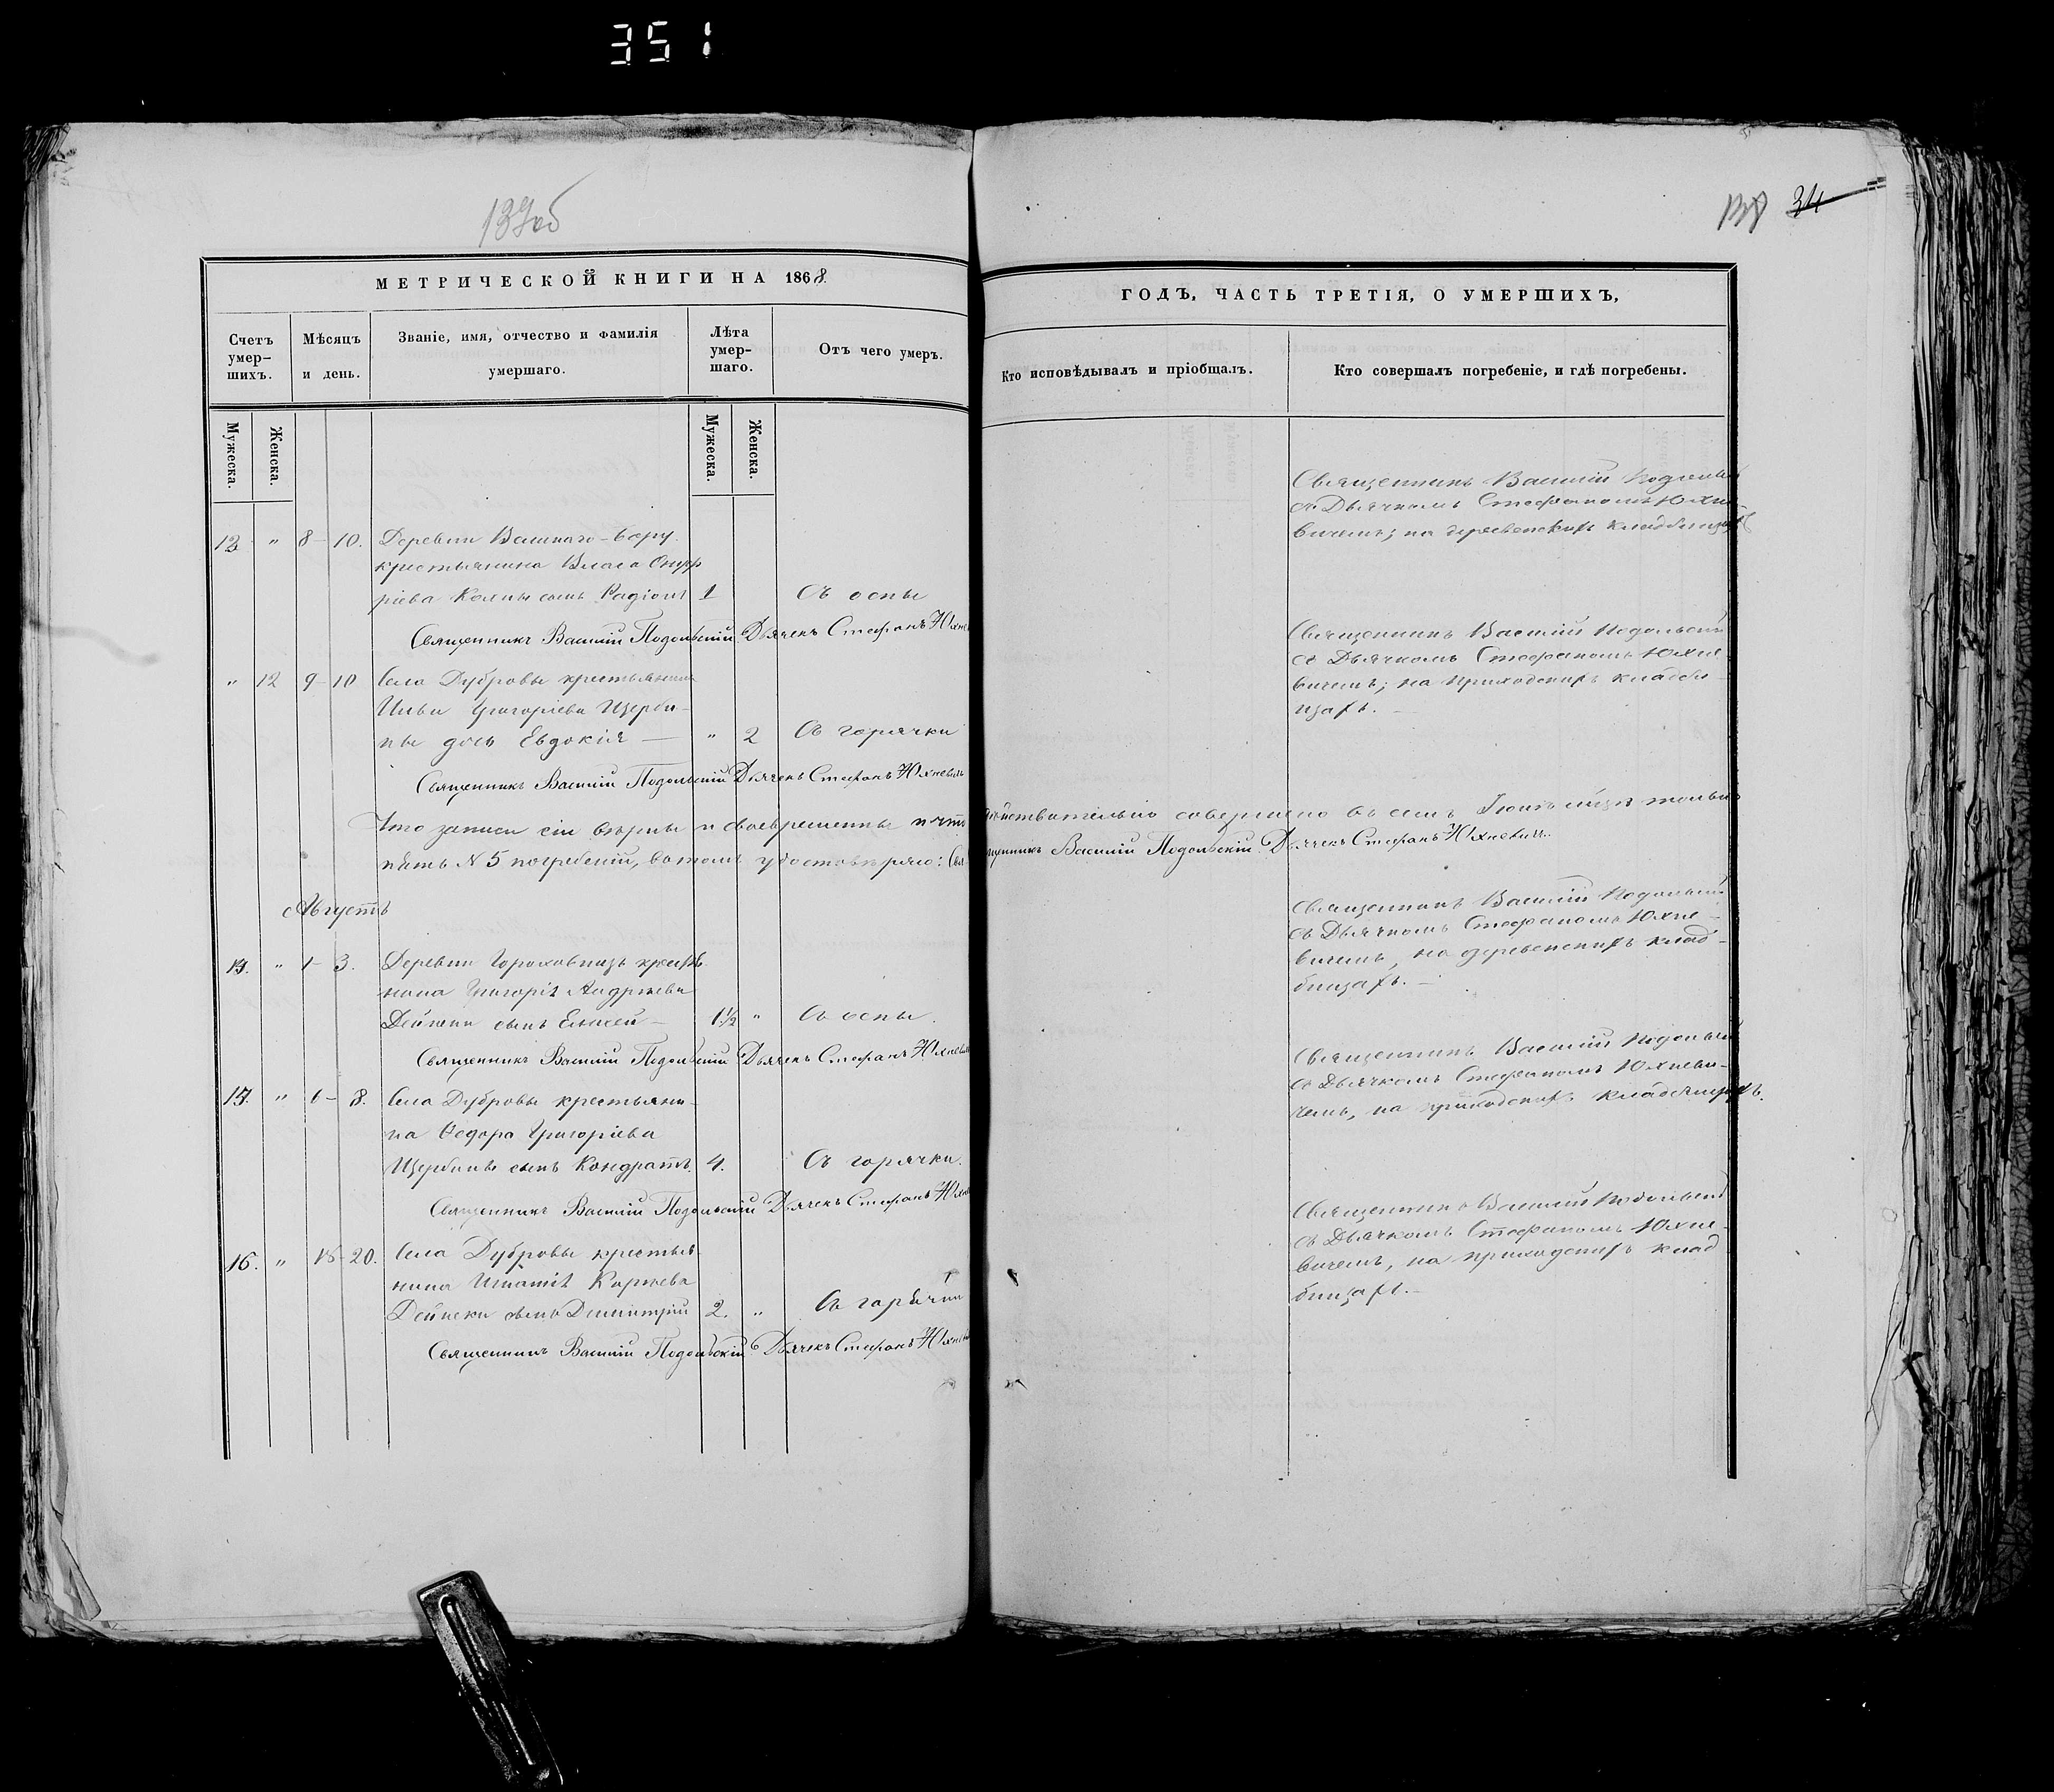 351
137об
138 34
МЕТРИЧЕСКОЙ КНИГИ НА 1868
ГОДЪ, ЧАСТЬ ТРЕТІЯ, О УМЕРШИХЪ,
Счетъ умер-
шихъ.
Мѣсяцъ
и день.
Званіе, имя, отчество и фамилія
умершаго.
Лѣта
умер-
шаго.
Отъ чего умеръ.
Кто исповѣдывалъ и пріобщалъ.
Кто совершалъ погребеніе, и гдѣ погребены.
Мужеска.
Женска.
Мужеска.
Женска.
13 " 8-10. Деревни
крестьянина Власа
сынъ Радіонъ 1 Съ оспы
Священникъ Василій Подольскій Дьячекъ Стефанъ
Священникъ Василій
съ Дьячкомъ Стефаномъ Юхне-
вичемъ; на деревенскихъ кладбищахъ
" 12 9-10 Села Дубровы крестьянина
Ильи Григоріева Щерби-
ны дочь Евдокія — " 2 Съ горячки
Священникъ Василій Подольскій Дьячекъ Стефанъ Юхневичъ
Священникъ Василій Подольскій
съ Дьячкомъ Стефаномъ Юхне-
вичемъ; на приходскихъ кладби-
щахъ. —
Что записи сіи вѣрны и своевременны и что дѣйствительно совершено въ семъ Іюлѣ мѣсяцѣ только
пять № 5 погребеній, въ томъ удостовѣряю: Священникъ Василій Подольскій Дьячекъ Стефанъ Юхневичъ.
Августъ
14. " 1-3. Деревни крестья-
нина Григорія Андреева
сынъ Елисей — 1½ " Съ оспы.
Священникъ Василій Подольскій Дьячекъ Стефанъ Юхневичъ
Священникъ Василій Подольскій
съ Дьячкомъ Стефаномъ Юхне-
вичемъ, на деревенскихъ клад-
бищахъ. —
15. " 6-8. Села Дубровы крестьяни-
на Ѳедора Григоріева
Щербины сынъ Кондратъ. 4. Съ горячки.
Священникъ Василій Подольскій Дьячекъ Стефанъ
Священникъ Василій Подольскій
съ Дьячкомъ Стефаномъ Юхневи-
чемъ, на приходскихъ кладбищахъ.
16. " 18-20. Села Дубровы крестья-
нина Игнатія
Дейнеки сынъ Димитрій 2. " Съ горячки
Священникъ Василій Подольскій Дьячекъ Стефанъ
Священникъ Василій Подольскій
съ Дьячкомъ Стефаномъ Юхне-
вичемъ, на приходскихъ клад-
бищахъ. —